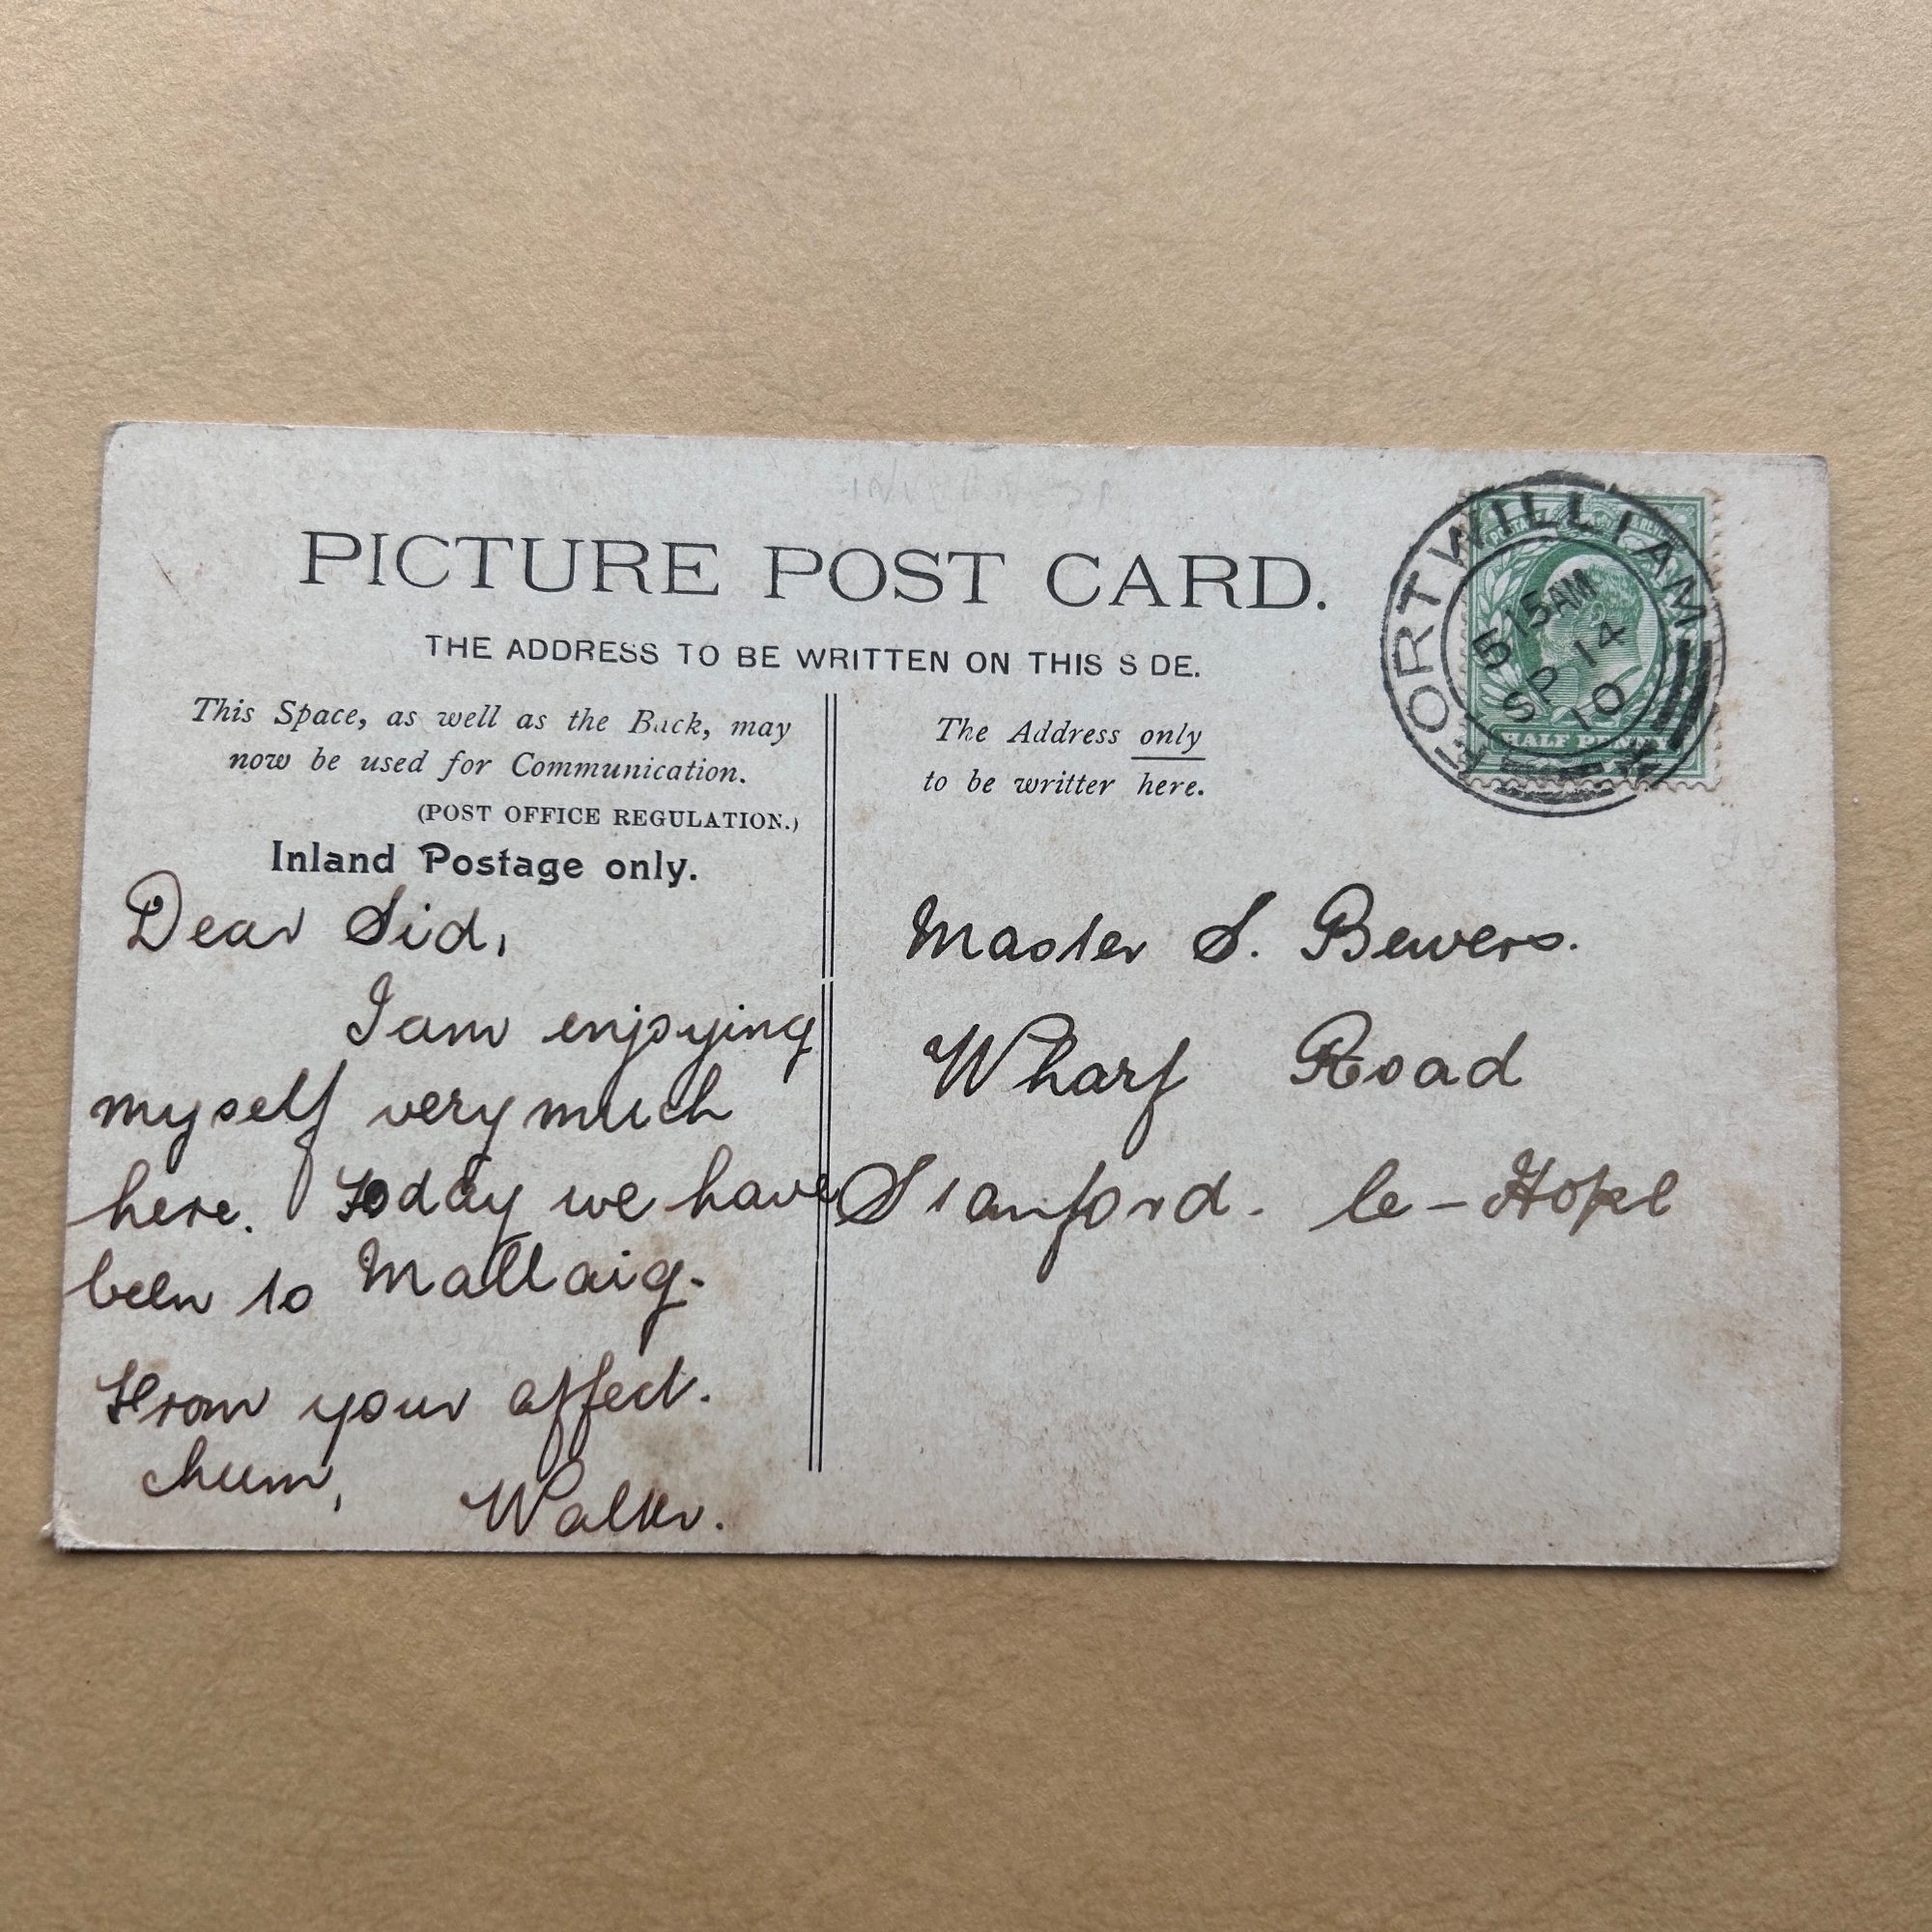 PICTURE POST CARD.
THE ADDRESS TO BE WRITTEN ON THIS S DE.
This Space, as well as the Back, may
now be used for Communication.
(POST OFFICE REGULATION.)
Inland Postage only.
Dear Sid,
I am enjoying
myself very much
here. Today we have
been to Mallaig.
From your affect.
chum,
Walter.
The Address only
to be writter here.
FORT WILLIAM
5 15AM
SP 14
10
HALF PENNY
Master S. Bewers.
Wharf Road
Stanford-le-Hope